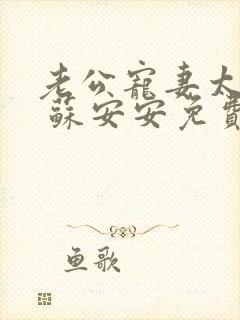 老公寵妻太
蘇安安免費
鱼歌